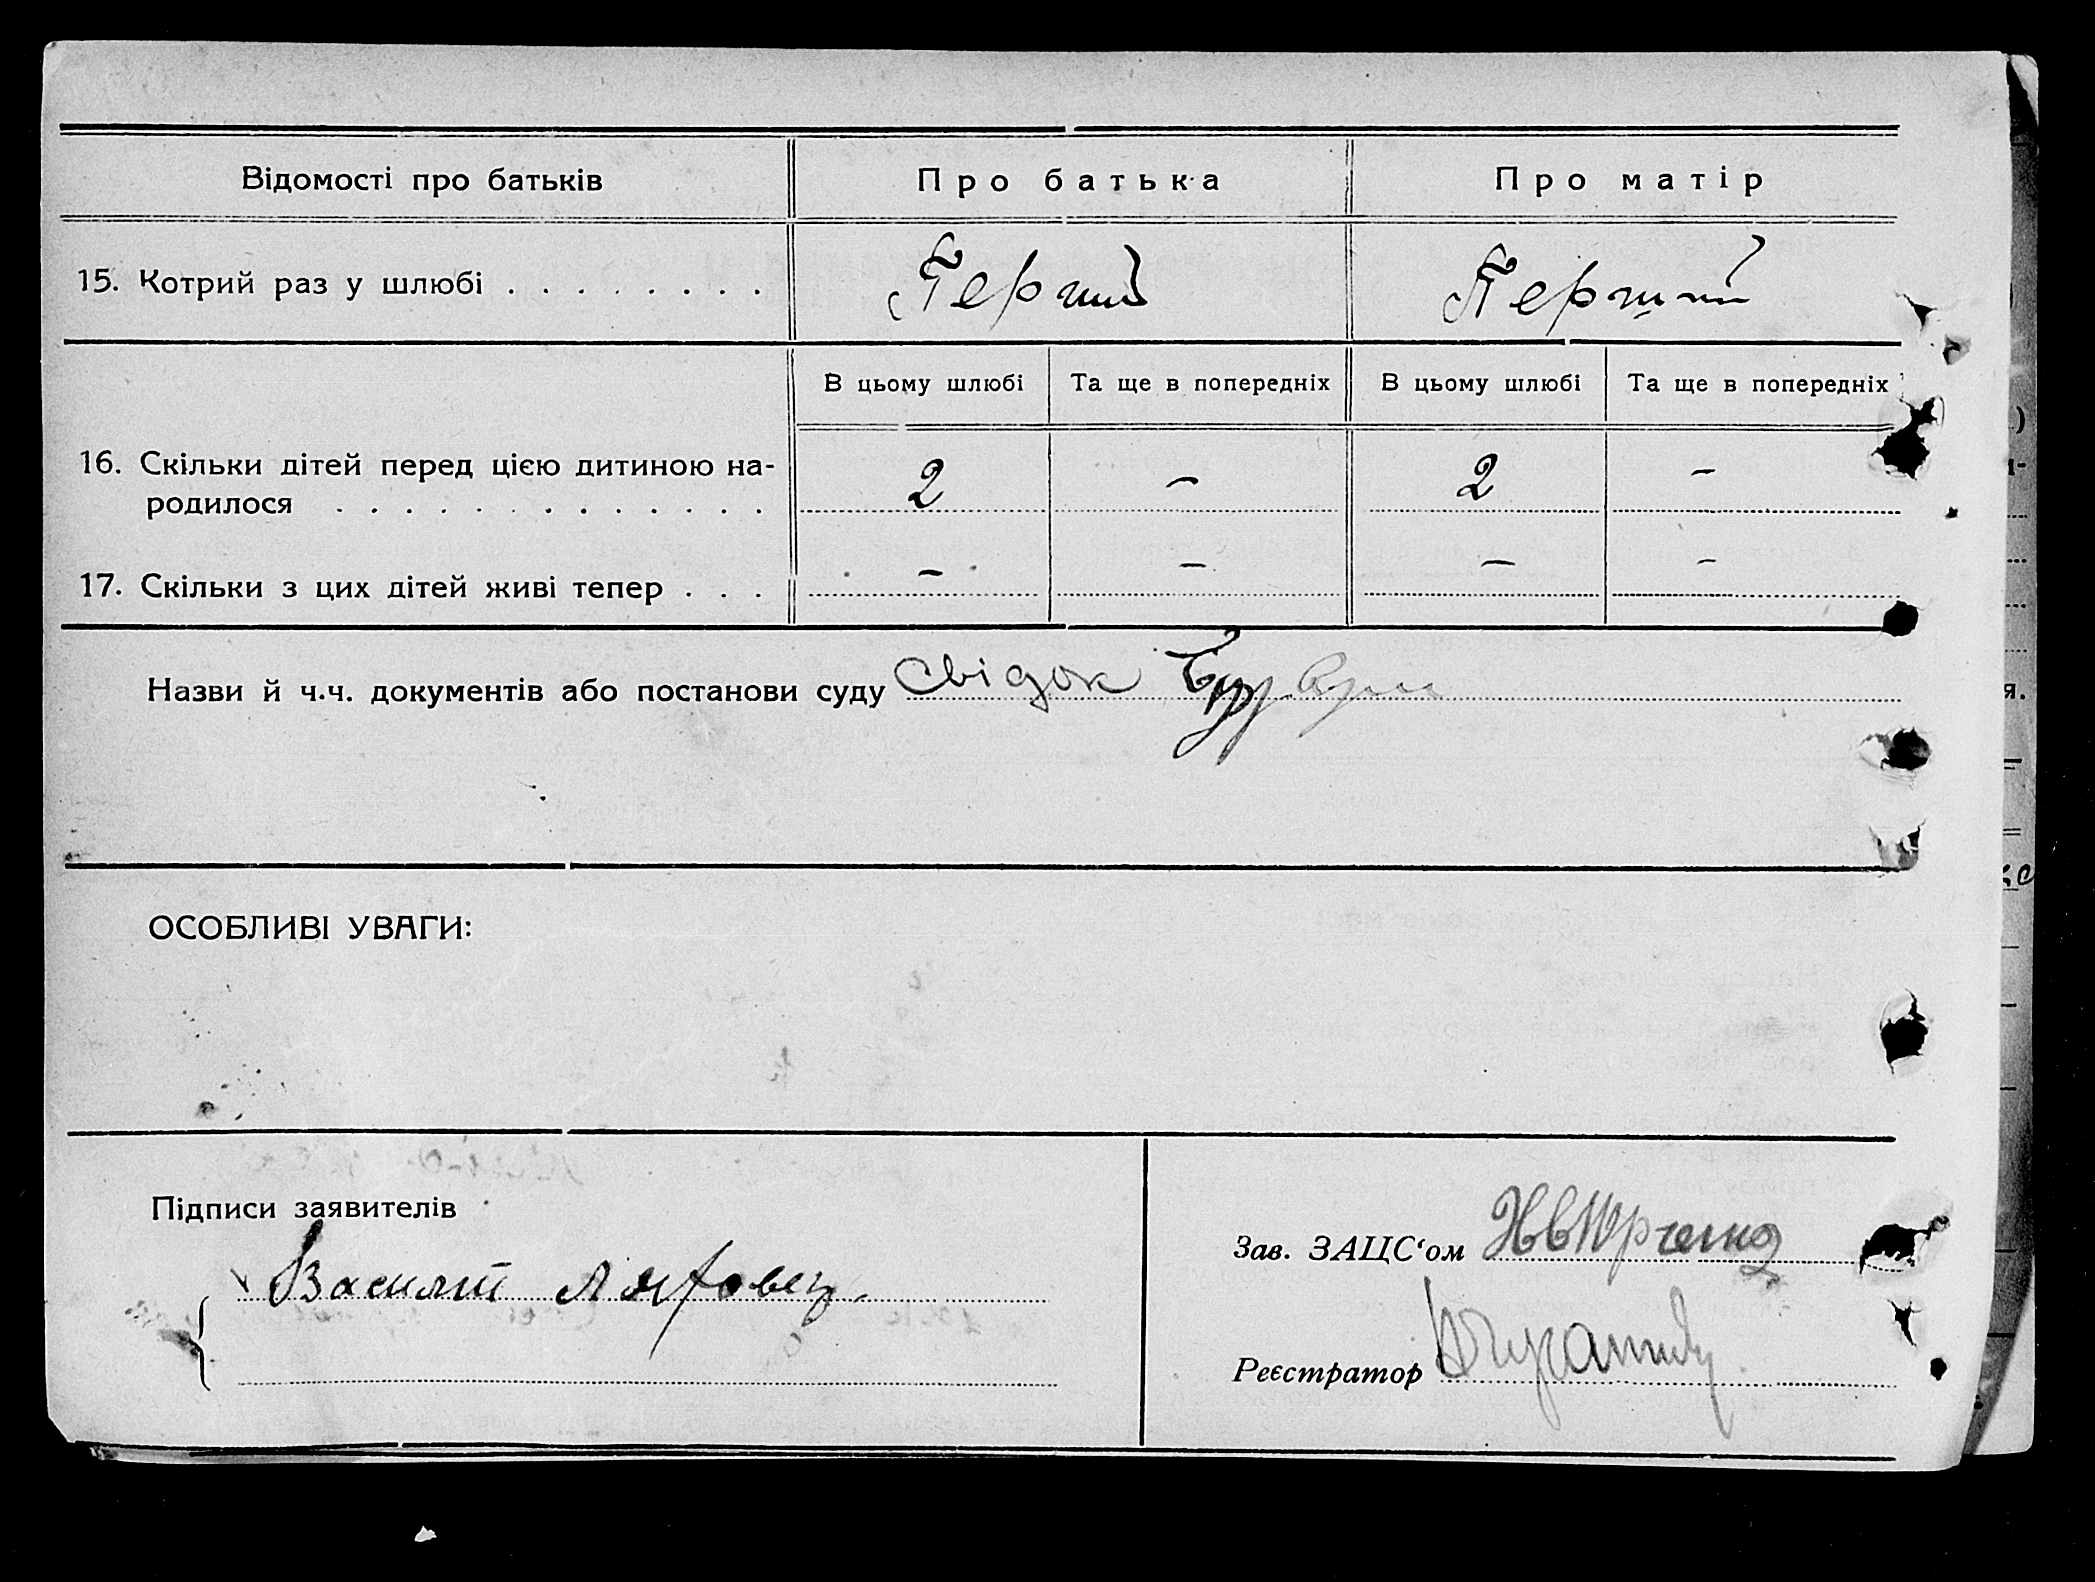 Відомості про батьків Про батька Про матір
15. Котрий раз у шлюбі . . . . . . . . Перший Перший
В цьому шлюбі Та ще в попередніх В цьому шлюбі Та ще в попередніх
16. Скільки дітей перед цією дитиною на-
родилося . . . . . . . . . . . . . 2 – 2 –
17. Скільки з цих дітей живі тепер . . . – – – –
Назви й ч.ч. документів або постанови суду свідок
ОСОБЛИВІ УВАГИ:
Підписи заявителів
Василь
Зав. ЗАЦС‘ом
Реєстратор